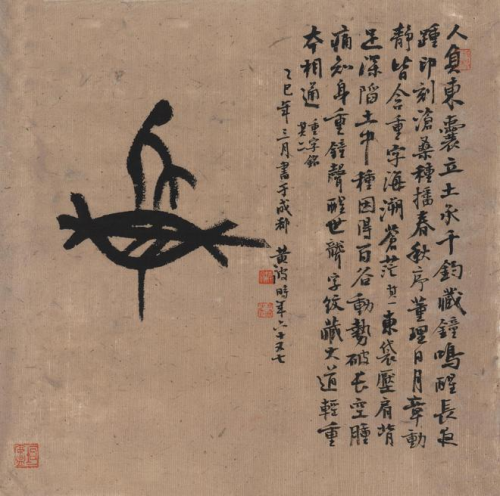 人負東囊立土承千鈞藏鐘鳴醒長夜
踵印刻滄桑種播春秋序董理日月章動
靜皆含重字海潮蒼茫其一東袋壓肩背
足深陷土中種因得百谷動勢破長空腫
痛知身重鐘聲醒世聾字紋藏大道輕重
本相通
重字銘
其二
乙巳年三月書于成都
黄波時年六十又七